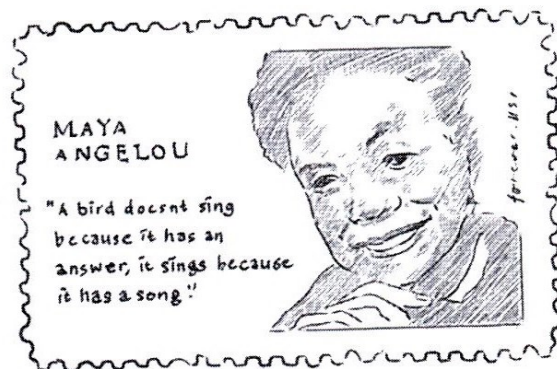 MAYA
ANGELOU
"A bird doesnt sing
because it has an
answer, it sings because
it has a song."
forever. USA